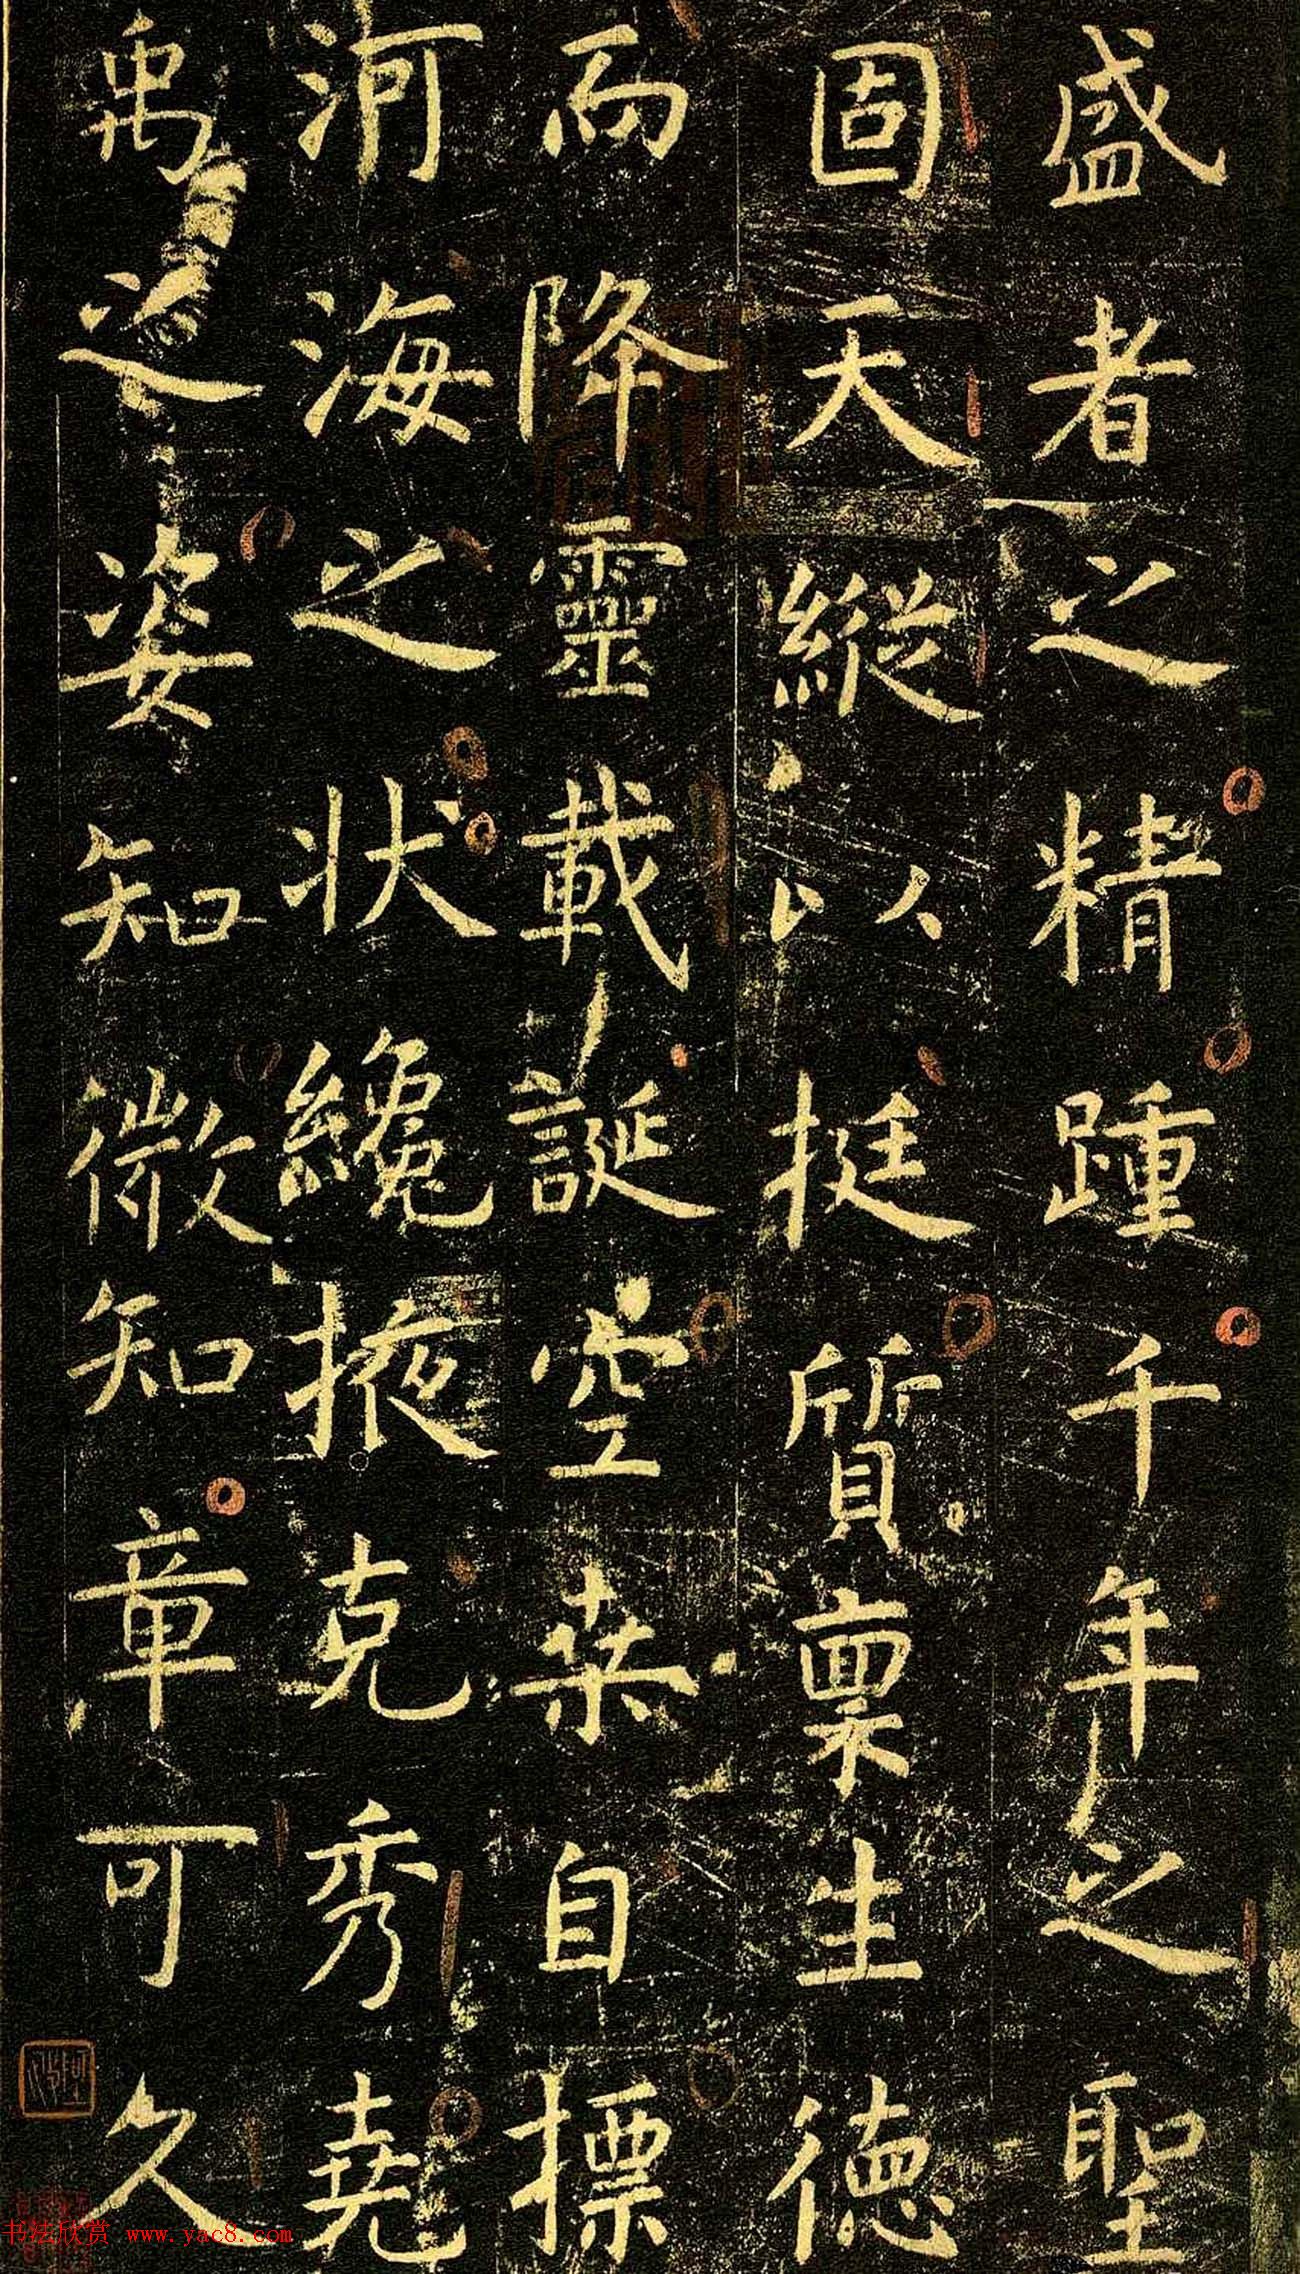 盛者之精踵千年之聖
固天縱以挺質稟生德
而降靈載誕空桑自標
河海之狀纔掖克秀堯
禹之姿知微知章可久
书法欣赏 www.yac8.com